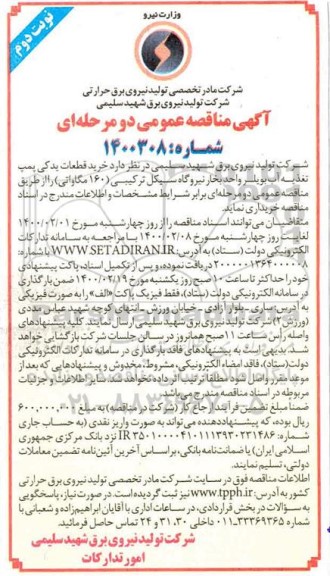 وزارت نیرو
نوبت دوم
شرکت مادر تخصصی تولید نیروی برق حرارتی
شرکت تولید نیروی برق شهید سلیمی
آگهی مناقصه عمومی دو مرحله‌ای
شماره: ۱۴۰۰۳۰۸
شرکت تولید نیروی برق شهید سلیمی در نظر دارد خرید قطعات یدکی پمپ
تغذیه آب بویلر واحد بخار نیروگاه سیکل ترکیبی (۱۶۰ مگاواتی) را از طریق
مناقصه عمومی دو مرحله‌ای برابر شرایط مشخصات و اطلاعات مندرج در اسناد
مناقصه خریداری نماید.
متقاضیان می‌توانند اسناد مناقصه را از روز چهارشنبه مورخ ۱۴۰۰/۰۲/۰۱
لغایت روز چهارشنبه مورخ ۱۴۰۰/۰۲/۰۸ با مراجعه به سامانه تدارکات
الکترونیکی دولت (ستاد) به آدرس: WWW.SETADIRAN.IR با شماره:
دریافت نموده، و پس از تکمیل اسناد، پاکت پیشنهادی
خود را حداکثر تا ساعت ۱۰ صبح روز یکشنبه مورخ ۱۴۰۰/۰۲/۱۹ ضمن بارگذاری
در سامانه الکترونیکی دولت (ستاد)، فقط فیزیک پاکت «الف» را به صورت فیزیکی
به آدرس ساری، بلوار آزادی، خیابان ورزش، انتهای کوچه شهید عباس مددی
(ورزش ۲) شرکت تولید نیروی برق شهید سلیمی ارسال نمایند. کلیه پیشنهادهای
واصله راس ساعت ۱۱ صبح همانروز در سالن جلسات شرکت بازگشایی خواهد
شد. بدیهی است به پیشنهادهای فاقد بارگذاری در سامانه تدارکات الکترونیکی
(ستاد)، فاقد امضاء الکترونیکی، مشروط، مخدوش و پیشنهادهایی که بعد از
موعد مقرر واصل شود مطلقا ترتیب اثر داده نخواهد شد. سایر اطلاعات و جزئیات
مربوطه در اسناد مناقصه مندرج می‌باشد.
ضمنا مبلغ تضمین فرآیند ارجاع کار (شرکت در مناقصه) به مبلغ ۶۰۰,۰۰۰,۰۰۰
ریال بوده، که پیشنهاددهنده می‌تواند به صورت واریز نقدی (به حساب جاری
شماره: نزد بانک مرکزی جمهوری
اسلامی ایران) یا ضمانتنامه بانکی، براساس آخرین آئین‌نامه تضمین معاملات
دولتی، تسلیم نمایند.
اطلاعات مناقصه فوق در سایت شرکت مادر تخصصی تولید نیروی برق حرارتی
کشور به آدرس: www.tpph.ir نیز ثبت گردیده است. در صورت نیاز، پاسخگویی
به سوالات در بخش قراردادی، در ساعات اداری با آقایان ابراهیم‌زاده و شعبانی با
شماره ۳۳۳۶۹۳۶۵-۰۱۱ داخلی ۳۰، ۳۱ و ۲۴ تماس حاصل فرمائید.
شرکت تولید نیروی برق شهید سلیمی
امور تدارکات